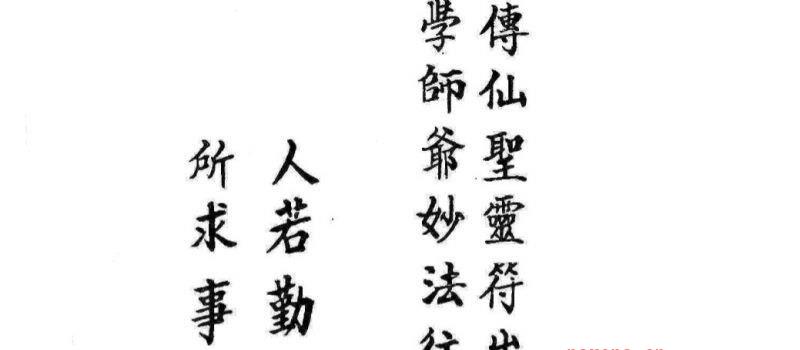 傳仙聖靈符出
學師爺妙法行
人若勤
所求事